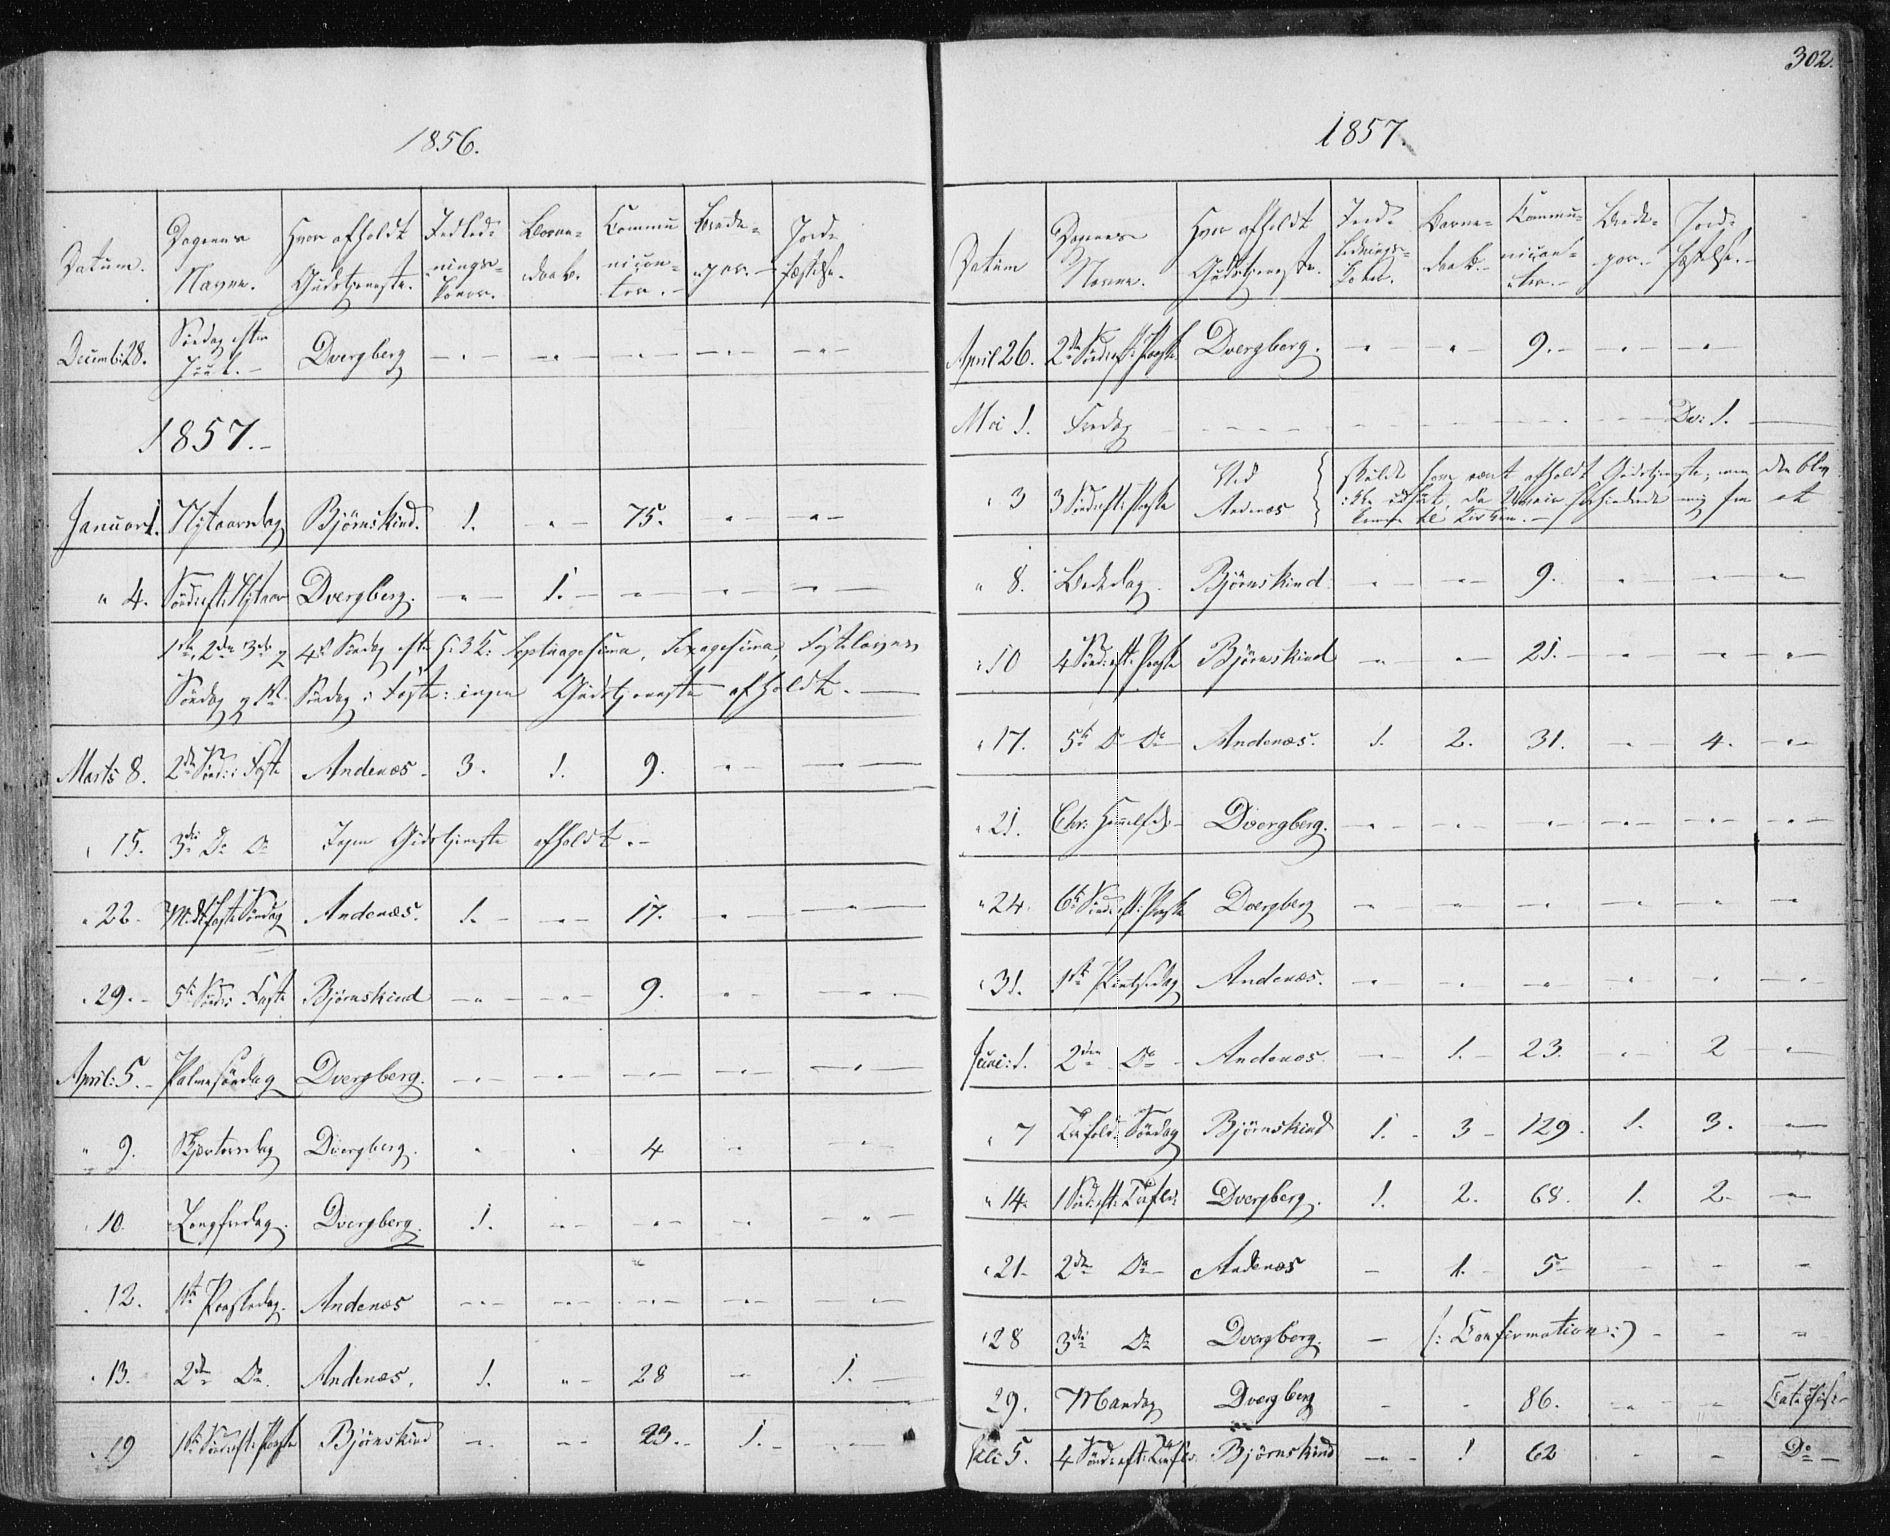 302.
1856.
Datum. Dagenes Navne. Hvor afholdt Gudstjeneste. Indled- nings- koner. Barne- daab. Commu nican- ter. Brude- par. Jords- fæstelse.
Decemb: 28. Søndag efter Juul. Dvergberg
1857.
Januar 1. Nytaarsdag Bjørnskind. 1. 75.
" 4. Sønd: eft: Nytaar Dvergberg. 1.
1ste, 2den 3die og 4de Søndag efter H: 3 K: Septuagesima, Sexagesima, Fastelavns
Søndag og 1ste Søndag i Faste: ingen Gudstjeneste afholdt.
Marts 8. 2den Sønd: i Faste Andenæs 3. 1. 9.
" 15. 3die Do Do Ingen Gudstjeneste afholdt.
" 22. Midfaste Søndag Andenæs. 1. 17.
" 29. 5te Sønd: i Faste Bjørnskind 9.
April: 5. Palmesøndag Dvergberg.
" 9. Skjærtorsdag Dvergberg. 4
" 10. Langfredag. Dvergberg. 1.
" 12. 1ste Paaskedag. Andenæs
" 13. 2den Do Andenæs. 1. 28 1.
" 19 1ste Sønd: eft: Paaske Bjørnskind 23. 1.
1857.
Datum Dagenes Navne. Hvor afholdt Gudstjeneste. Ind- lednings- Koner. Barne- daab. Kommu- nicant- ter. Brude- par. Jords- fæstelse.
April 26. 2den Sønd: eft: Paaske Dvergberg. 9.
Mai 1. Fredag Do: 1.
" 3 3 Sønd: eft: Paaske Ved Andenæs skulde have været afholdt Gudstjeneste, men den blev
ikke udført, da Uveir forhindrede mig fra at
komme til Kirken.
" 8. Bededag Bjørnskind 9.
" 10 4 Sønd: eft: Paaske Bjørnskind 21.
" 17. 5te Do Do Andenæs. 1. 2. 31. 4.
" 21. Chr: Himmelf: d: Dvergberg.
" 24. 6te Sønd: eft: Paaske Dvergberg
" 31. 1ste Pintsedag Andenæs.
Juni: 1. 2den Do Andenæs. 1. 23. 2
" 7 Trefold: Søndag Bjørnskind 1. 3 129. 1. 3.
" 14. 1 Sønd: eft: Trefold: Dvergberg. 1. 2. 68. 1. 2.
" 21. 2den Do Andenæs 1. 5
" 28 3die Do Dvergberg. (: Confirmation :)
29. Mandag Dvergberg 86. Catechise
Juli 5. 4 Sønd: eft: Trefold: Bjørnskind 1 62 Do